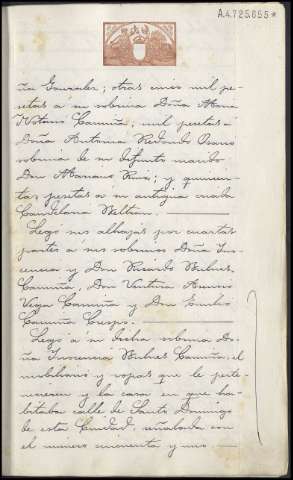 A.4.725.655*
ña Gonzalez; otras cinco mil pe-
setas á su sobrina Doña Maria
Notario Camuña; mil pesetas á
Doña Antonia Redondo Osorio
sobrina de su difunto marido
Don Mariano Ruiz; y quinien-
tas pesetas á su antigua criada
Candelaria
Legó sus alhajas por cuartas
partes á sus sobrinos Doña Ino-
cencia y Don Ricardo
Camuña, Don Ventura Asensio
Vega Camuña y Don Emilio
Camuña Crespo.
Legó á su dicha sobrina Do-
ña Inocencia Camuña, el
mobiliario y ropas que le perte-
neciesen y la casa en que ha-
bitaba calle de Santo Domingo
de esta Ciudad, señalada con
el número cincuenta y uno.